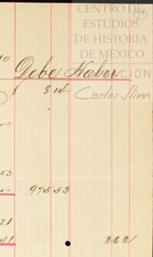 CENTRO DE
ESTUDIOS
DE HISTORIA
DE MEXICO
Debe Haber
CIÓN
Carlos Slim
$ 14
53
97553
21
41
2621